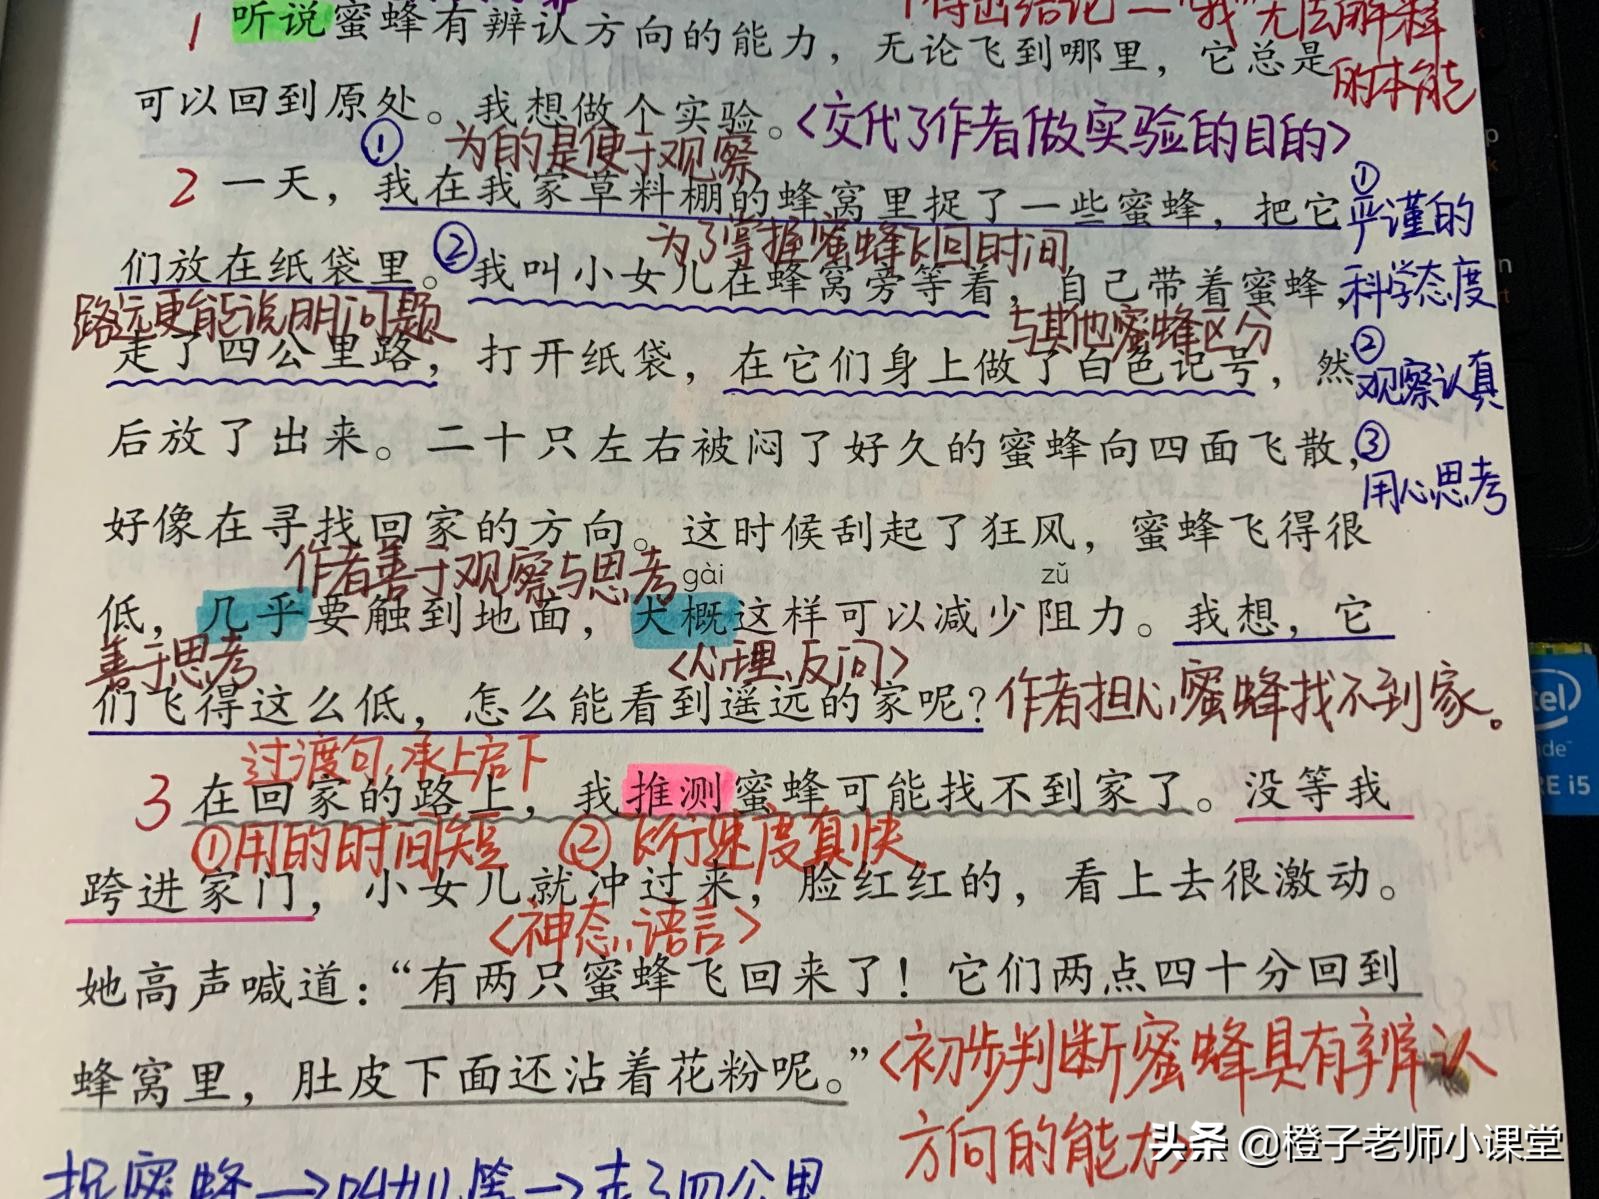 得出结论—“我”无法解释
的本能
1 听说蜜蜂有辨认方向的能力，无论飞到哪里，它总是
可以回到原处。我想做个实验。
<交代了作者做实验的目的>
① 为的是便于观察
2 一天，我在我家草料棚的蜂窝里捉了一些蜜蜂，把它
①严谨的
科学态度
②
观察认真
③
用心思考
② 为了掌握蜜蜂飞回时间
们放在纸袋里。我叫小女儿在蜂窝旁等着，自己带着蜜蜂，
路远更能说明问题
与其他蜜蜂区分
走了四公里路，打开纸袋，在它们身上做了白色记号，然
后放了出来。二十只左右被闷了好久的蜜蜂向四面飞散，
好像在寻找回家的方向。这时候刮起了狂风，蜜蜂飞得很
作者善于观察与思考
gài zǔ
低，几乎要触到地面，大概这样可以减少阻力。我想，它
善于思考
<心理、反问>
们飞得这么低，怎么能看到遥远的家呢？
作者担心蜜蜂找不到家。
过渡句，承上启下
3 在回家的路上，我推测蜜蜂可能找不到家了。没等我
①用的时间短 ②飞行速度真快
跨进家门，小女儿就冲过来，脸红红的，看上去很激动。
<神态、语言>
她高声喊道：“有两只蜜蜂飞回来了！它们两点四十分回到
蜂窝里，肚皮下面还沾着花粉呢。”
<初步判断蜜蜂具有辨认
方向的能力>
捉蜜蜂→叫女儿等→走了四公里
头条 @橙子老师小课堂
intel
CORE i5